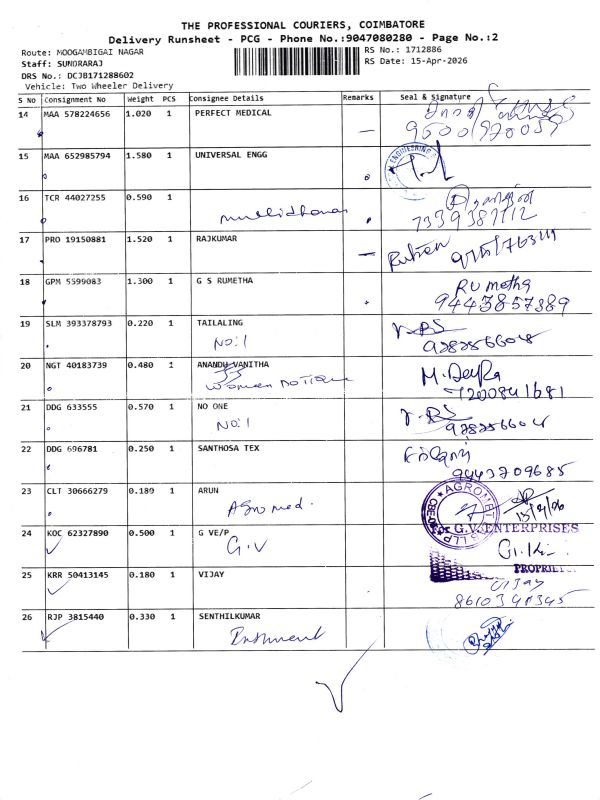 THE PROFESSIONAL COURIERS, COIMBATORE
Delivery Runsheet - PCG - Phone No.:9047080280 - Page No.:2
Route: MOOGAMBIGAI NAGAR
RS No.: 1712886
Staff: SUNDRARAJ
RS Date: 15-Apr-2026
DRS No.: DCJB171288602
Vehicle: Two Wheeler Delivery
S No Consignment No Weight PCS Consignee Details Remarks Seal & Signature
14 MAA 578224656 1.020 1 PERFECT MEDICAL
15 MAA 652985794 1.580 1 UNIVERSAL ENGG
ENGINEERING
16 TCR 44027255 0.590 1
7339387112
17 PRO 19150881 1.520 1 RAJKUMAR
18 GPM 5599083 1.300 1 G S RUMETHA
Rumetha
9443857389
19 SLM 393378793 0.220 1 TAILALING
No:1
9282566048
20 NGT 40183739 0.480 1 ANANDU VANITHA
Women
7200841681
21 DDG 633555 0.570 1 NO ONE
No:1
9282566048
22 DDG 696781 0.250 1 SANTHOSA TEX
9443709685
23 CLT 30666279 0.180 1 ARUN
Agromed.
AGROMET
LLP
24 KOC 62327890 0.500 1 G VE/P
G.V
G.V. ENTERPRISES
25 KRR 50413145 0.180 1 VIJAY
vijay
8610340345
26 RJP 3815440 0.330 1 SENTHILKUMAR